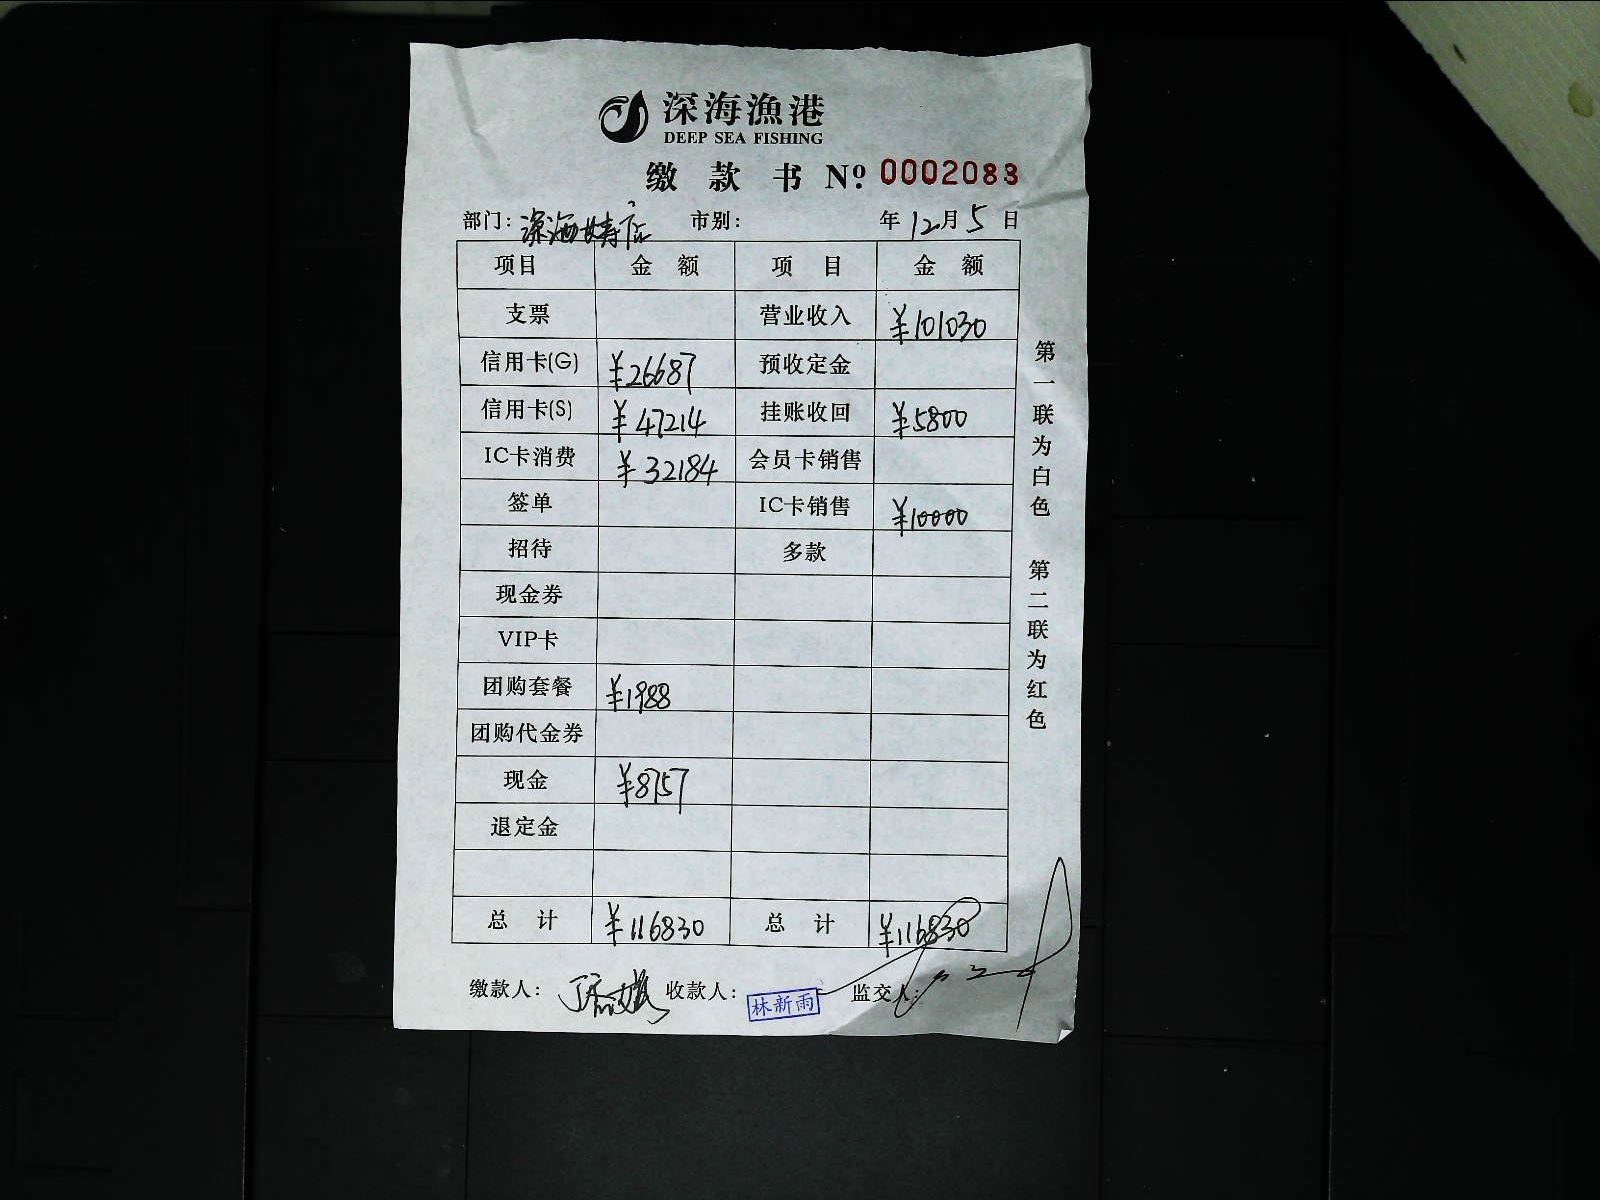 深海漁港
DEEP SEA FISHING
缴款书 Nº 0002083
部门: 深海 店 市别: 年 12月 5日
项目 金额 项目 金额
支票 营业收入 ¥101030
信用卡(G) ¥26687 预收定金
信用卡(S) ¥47214 挂账收回 ¥5800
IC卡消费 ¥32184 会员卡销售
签单 IC卡销售 ¥10000
招待 多款
现金券
VIP卡
团购套餐 ¥1988
团购代金券
现金 ¥8757
退定金
总计 ¥116830 总计 ¥116830
缴款人: 收款人: 林新雨 监交人:
第一联为白色 第二联为红色